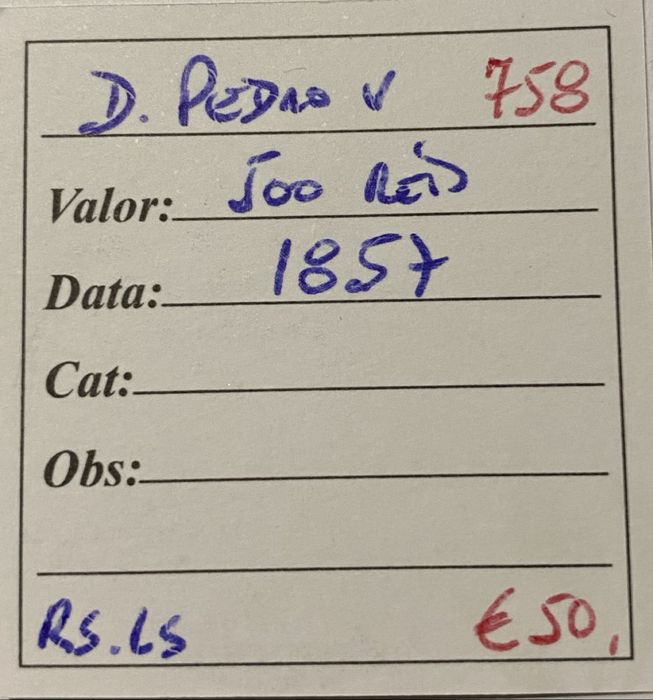 D. PEDRO V 758
Valor: 500 REIS
Data: 1857
Cat:
Obs:
RS.LS €50,